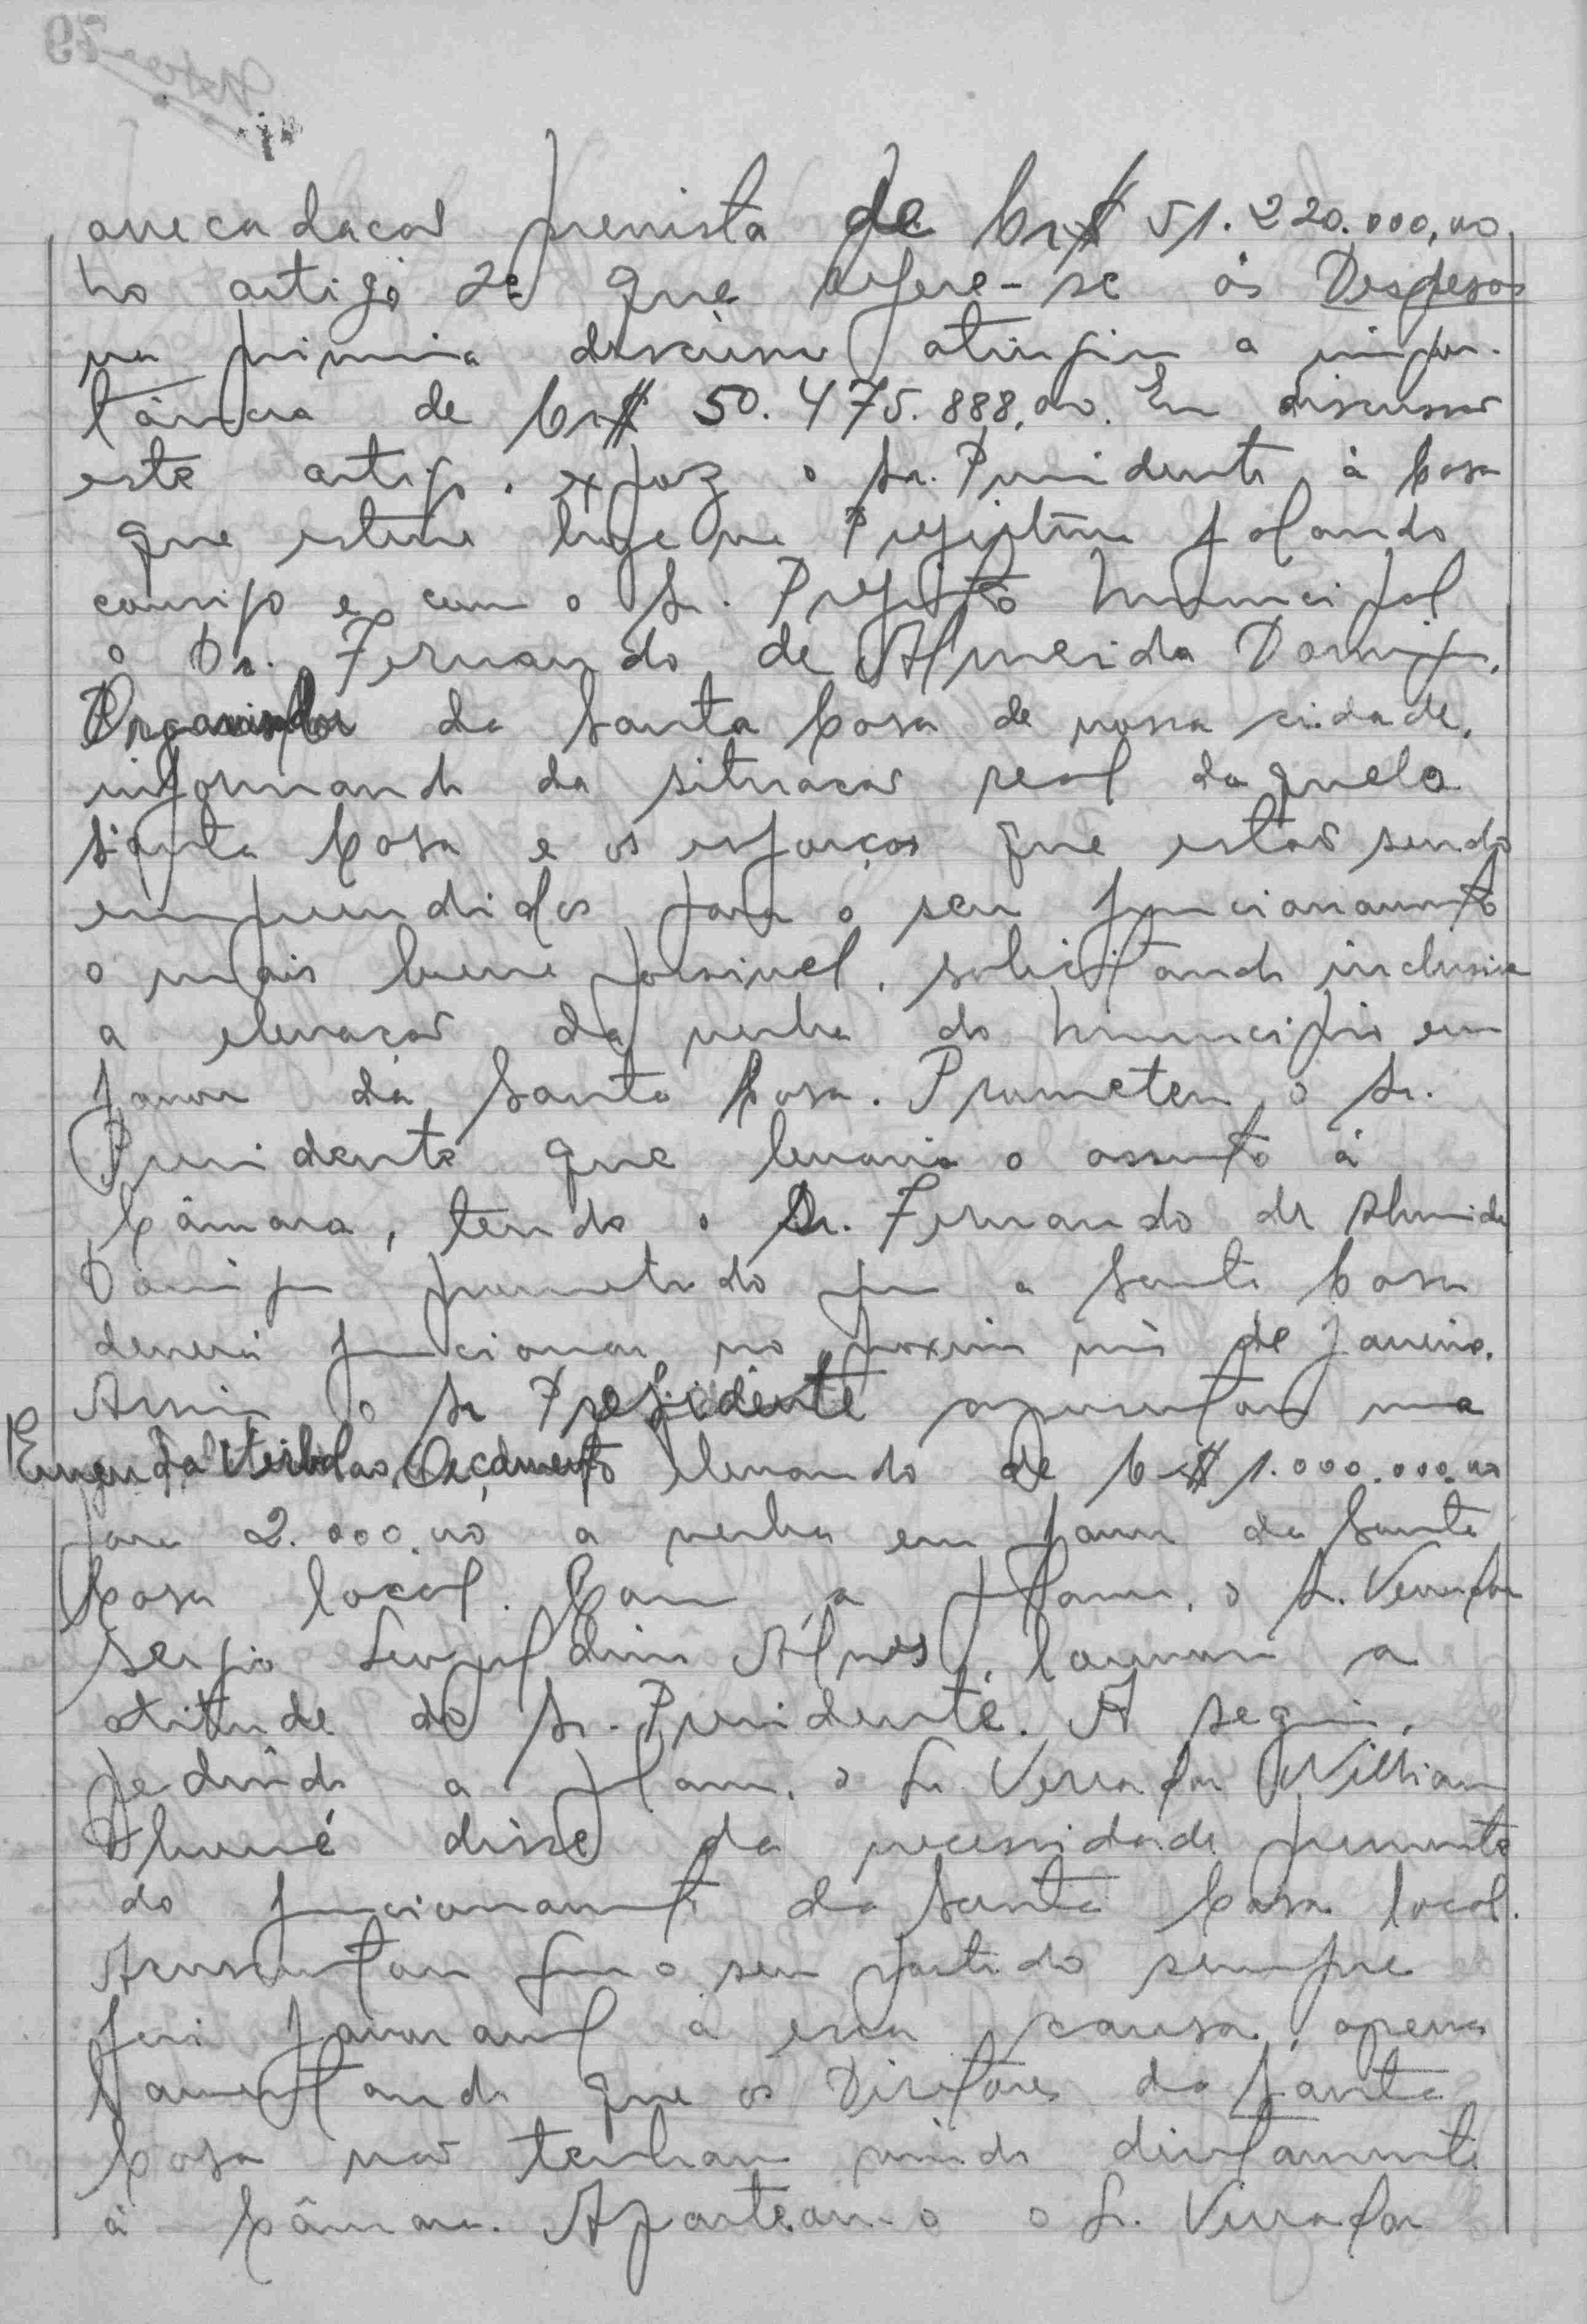 arrecadacão prevista de Cr$ 51.220.000,00.
No artigo 2º que refere-se ás Despesas
na primeira discussão atingiu a impor-
tância de Cr$ 50.475.888,00. Em discussão
este artigo, expoz o Sr. Presidente à Casa
que esteve hoje na Prefeitura falando
comsigo e com o Sr. Prefeito Municipal
o Dr. Fernando de Almeida
Organisador da Santa Casa de nossa cidade,
informando da situacão real daquela
Santa Casa e os esforços que estão sendo
empreendidos para o seu funcionamento
o mais breve possivel, solicitando inclusive
a elevacão da verba do Municipio em
favor da Santa Casa. Prometeu o Sr.
Presidente que levaria o assunto à
Câmara, tendo o Dr. Fernando de Almeida
prometido que a Santa Casa
deverá funcionar no proximo mês de Janeiro.
Assim o Sr Presidente apresentou uma
Emenda Orçamento elevando de Cr$ 1.000.000,00
para 2.000,00 a verba em favor da Santa
Casa local. Com a palavra, o Sr. Vereador
Sergio Alves, louvou a
atitude do Sr. Presidente. A seguir,
pedindo a palavra, o Sr. Vereador William
disse da necessidade premente
do funcionamento da Santa Casa local.
Acrescentou que o seu partido sempre
foi favoravel à essa causa, apenas
lamentando que os Diretores da Santa
Casa não tenham vindo diretamente
à Câmara. Aparteando o Sr. Vereador